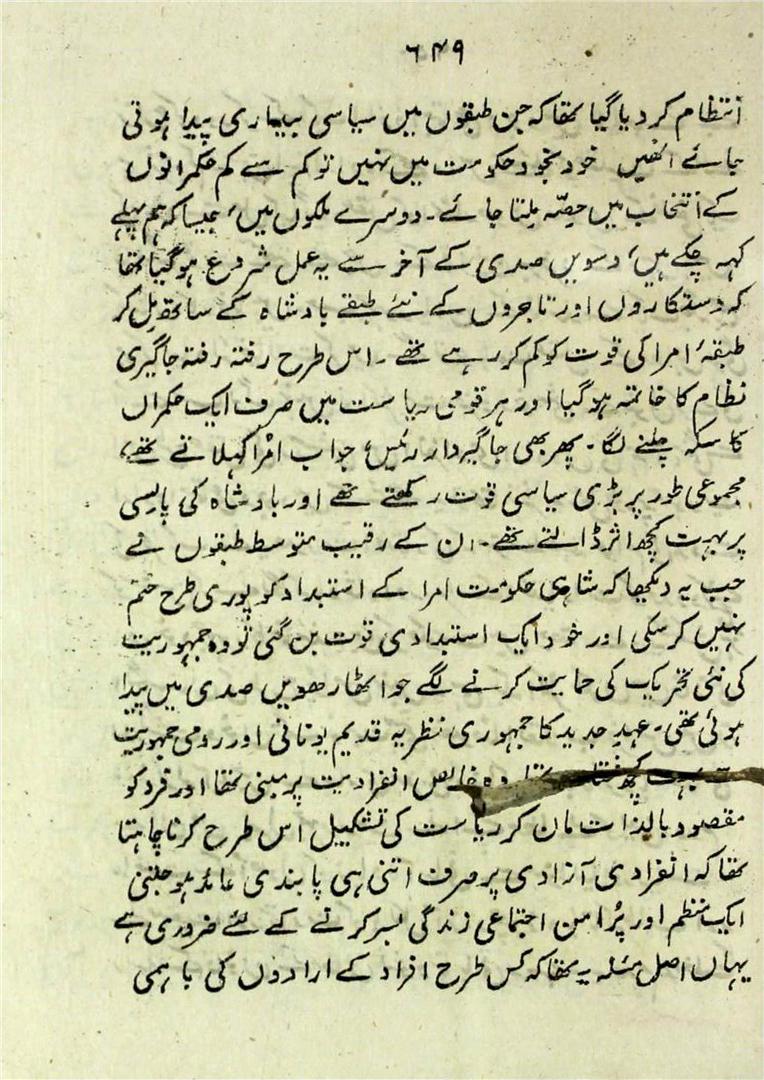 ٦٤٩
انتظام کر دیا گیا تھا کہ جن طبقوں میں سیاسی بیداری پیدا ہوتی
جائے انھیں خود بخود حکومت میں نہیں تو کم سے کم حکمرانوں
کے انتخاب میں حصّہ ملتا جائے۔ دوسرے ملکوں میں، جیسا کہ ہم پہلے
کہہ چکے ہیں، دسویں صدی کے آخر سے یہ عمل شروع ہو گیا تھا
کہ دستکاروں اور تاجروں کے نئے طبقے بادشاہ کے ساتھ مل کر
طبقۂ امرا کی قوت کو کم کر رہے تھے۔ اس طرح رفتہ رفتہ جاگیری
نظام کا خاتمہ ہو گیا اور ہر قومی ریاست میں صرف ایک حکمراں
کا سکہ چلنے لگا۔ پھر بھی جاگیردار رئیس، جو اب امرا کہلاتے تھے،
مجموعی طور پر بڑی سیاسی قوت رکھتے تھے اور بادشاہ کی پالیسی
پر بہت کچھ اثر ڈالتے تھے۔ ان کے رقیب متوسط طبقوں نے
جب یہ دیکھا کہ شاہی حکومت امرا کے استبداد کو پوری طرح ختم
نہیں کر سکی اور خود ایک استبدادی قوت بن گئی تو وہ جمہوریت
کی نئی تحریک کی حمایت کرنے لگے جو اٹھارھویں صدی میں پیدا
ہوئی تھی۔ عہدِ جدید کا جمہوری نظریہ قدیم یونانی اور رومی جمہوریت
سے بہت کچھ مختلف تھا۔ وہ خالص انفرادیت پر مبنی تھا اور فرد کو
مقصود بالذات مان کر ریاست کی تشکیل اس طرح کرنا چاہتا
تھا کہ انفرادی آزادی پر صرف اتنی ہی پابندی عائد ہو جتنی
ایک منظم اور پُرامن اجتماعی زندگی بسر کرنے کے لئے ضروری ہے
یہاں اصل مسئلہ یہ تھا کہ کس طرح افراد کے ارادوں کی باہمی